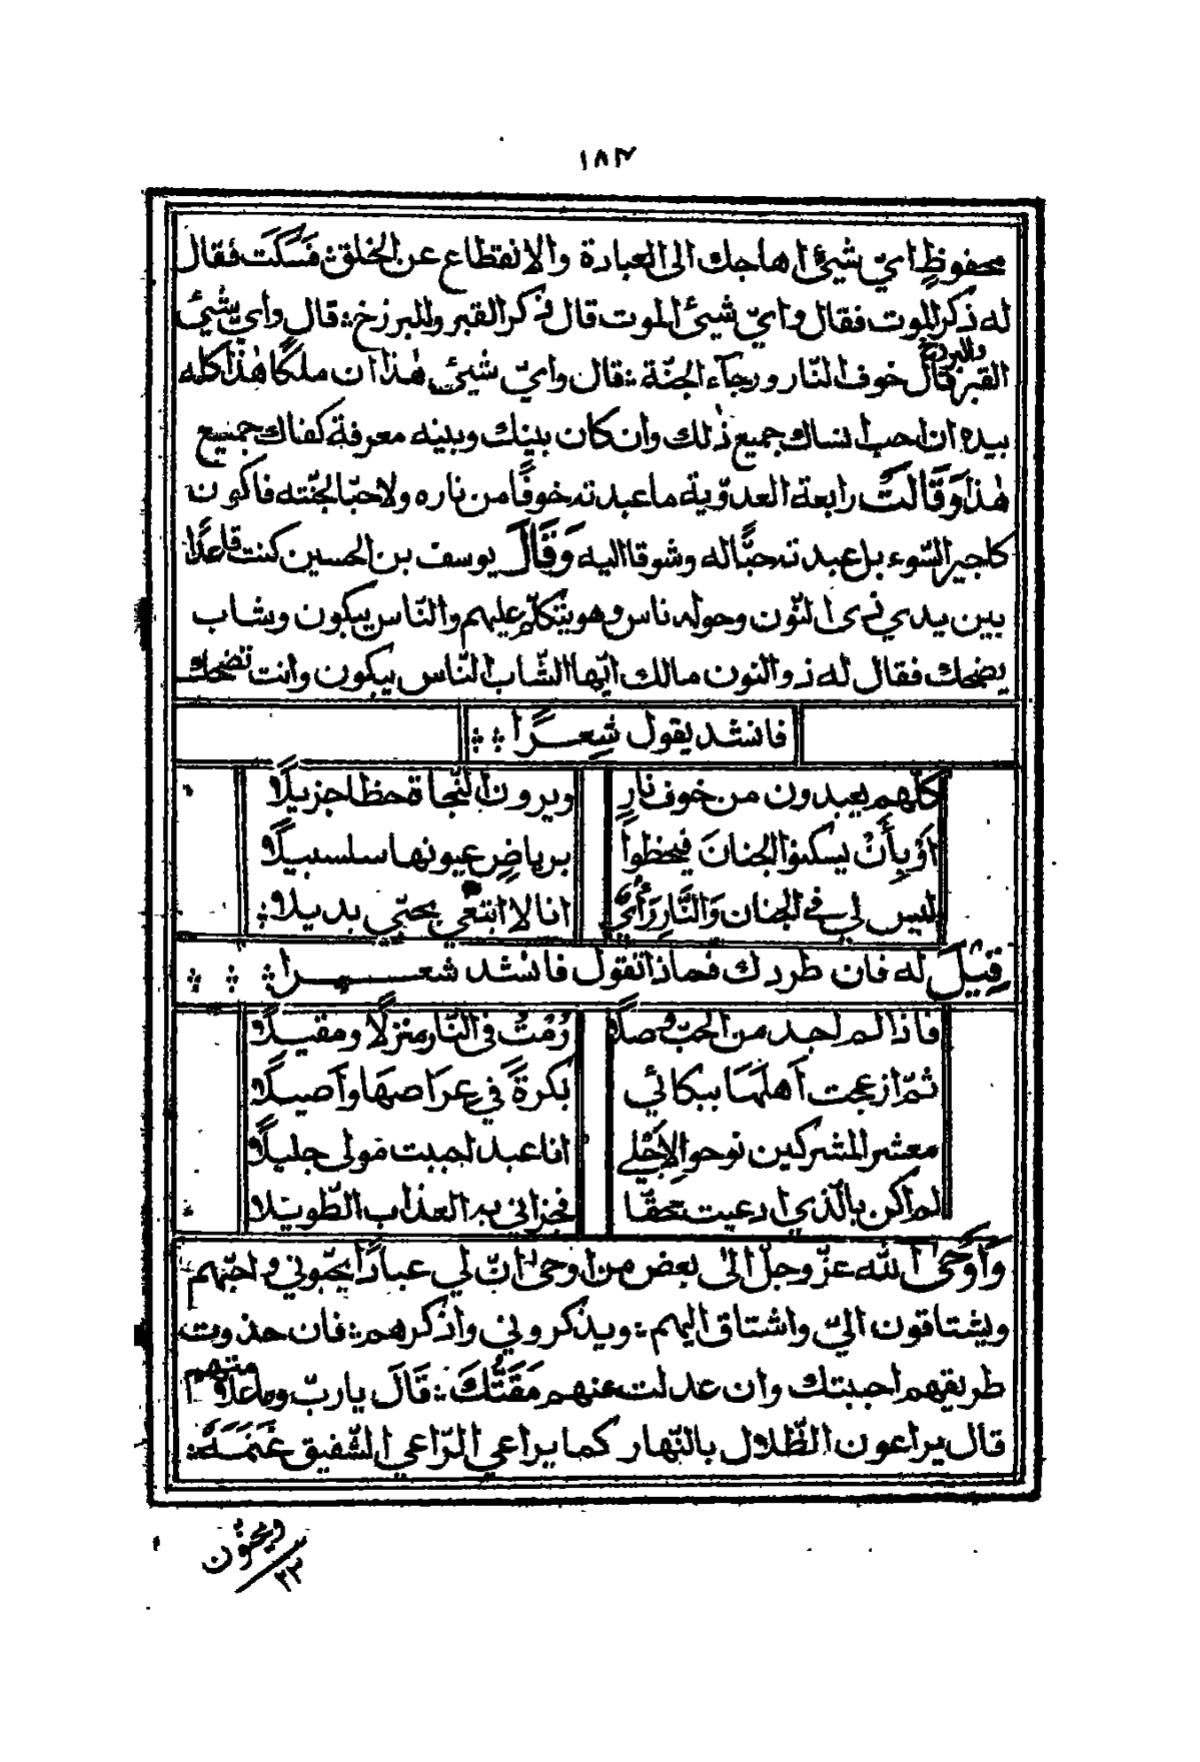 ١٨٣
محفوظ اي شيئ اهاجك الى العبادة والانقطاع عن الخلق فسكت فقال
له ذكر الموت فقال واي شيئ الموت قال ذكر القبر والبرزخ قال واي شيئ
والبرزخ
القبر قال خوف النار ورجآء الجنّة قال وايّ شيئ هٰذا ان ملكًا هٰذا كله
بيده ان احب انساك جميع ذٰلك وان كان بينك وبينه معرفة كفاك جميع
هٰذا وَقَالَتْ رابعة العدويّة ما عبدته خوفًا من ناره ولا حبّا لجنّته فاكون
كاجير السّوء بل عبدته حبًّا له وشوقا اليه وَقَالَ يوسف بن الحسين كنت قاعدًا
بين يدي ذى النّون وحوله ناس وهو يتكلّم عليهم والنّاس يبكون وشاب
يضحك فقال له ذو النون مالك ايّها الشّاب النّاس يبكون وانت تضحك
فانشد يقول شِعــرًا
كلّهم يعبدون من خوف نارٍ ويرون النّجاة حظا جزيلًا
اَوْ بِأَنْ يسكنوا الجنانَ فيحظواْ برياضٍ عيونها سلسبيلًا
ليس لي في الجنان وَالنَّارِ رَأْيٌ انا لا ابتغي بحبّي بديلا
قِيْلَ له فان طردك فماذا تقول فانشد شعــرا
فاذا لم اجد من الحبّ وصلًا رُمْتُ فى النّار منزلًا ومقيلًا
ثمّ ازعجت اَهلَهَا ببكائي بكرةً في عرَاصهَا وَاَصيلًا
معشر المشركين نوحوا لِاَجْلي انا عبد احببت مَولى جليلًا
لم اكن بالّذي ادعيت محقّا فجزاني به العذاب الطّويلا
وَاَوْحَى الله عزّ وجلّ الىٰ بعض من اوحىٰ انّ لي عبادًا يحبّوني واحبّهم
ويشتاقون اليّ واشتاق اليهم ويذكروني واذكرهم فان حذوت
طريقهم احببتك وان عدلت عنهم مَقَتُّكَ قَالَ يارب وما علامتهم
قال يراعون الظّلال بالنّهار كما يراعي الرّاعي الشّفيق غَنَمَهُ
ويحنون
٢٣